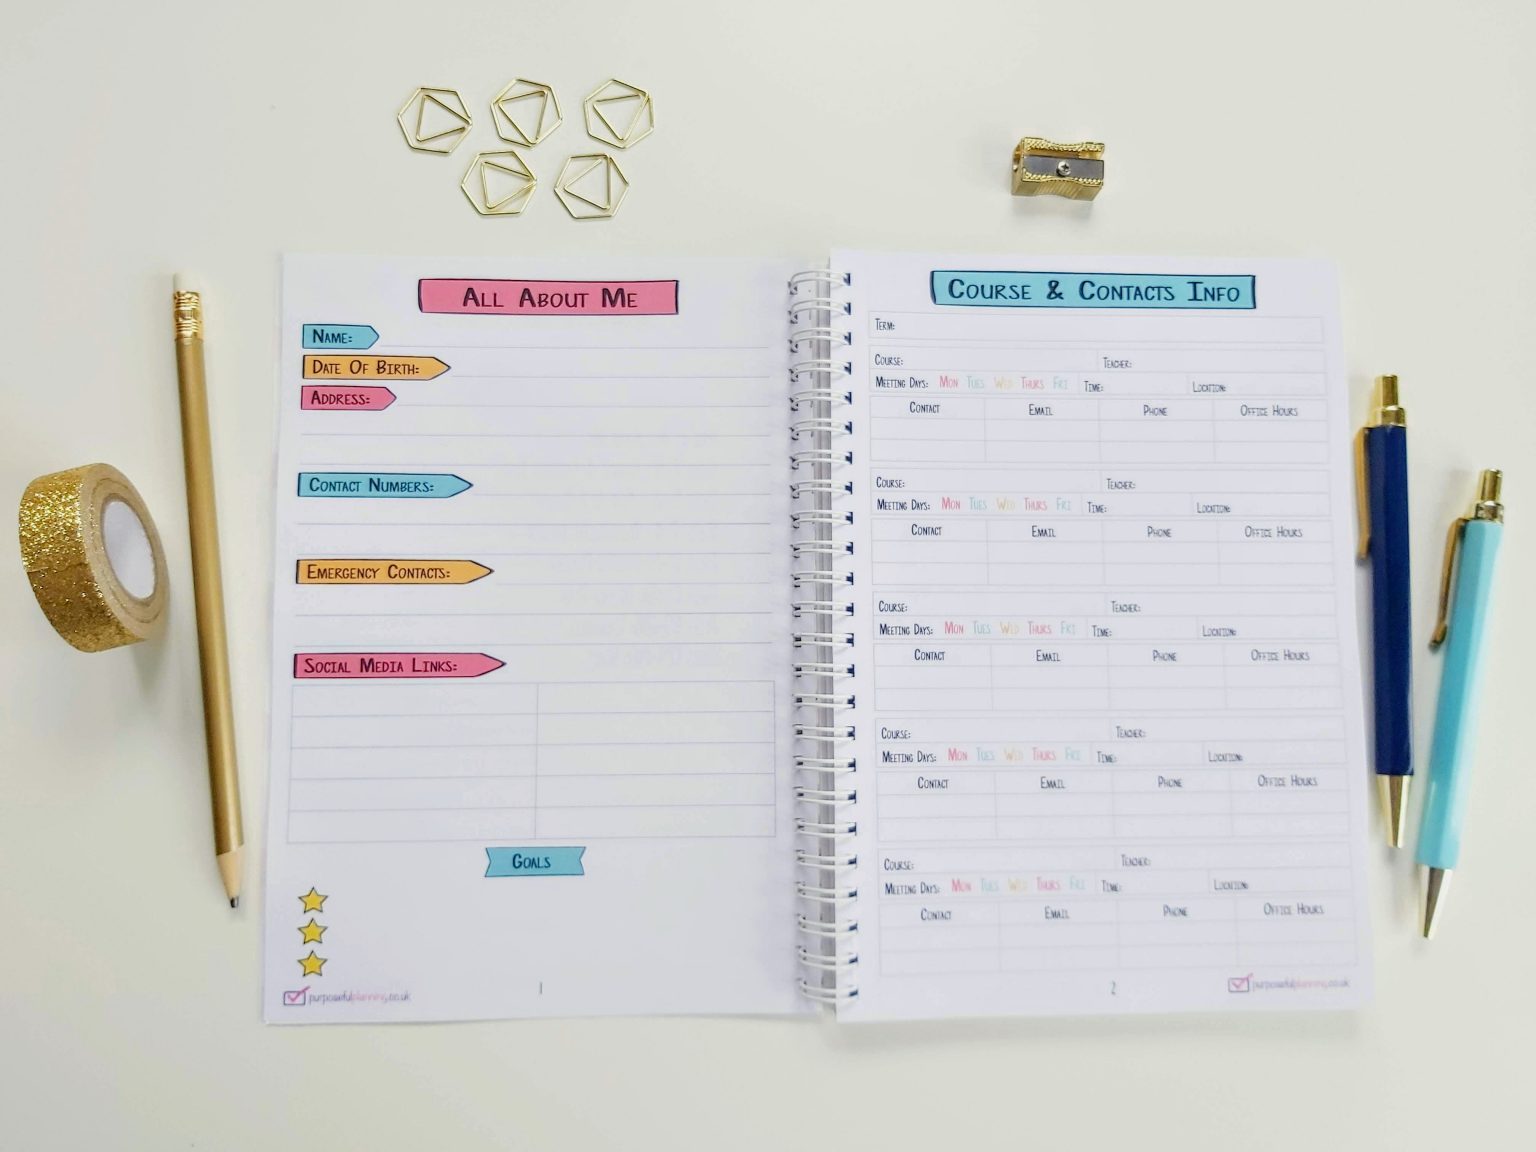 All About Me
Name:
Date Of Birth:
Address:
Contact Numbers:
Emergency Contacts:
Social Media Links:
Goals
purposefulplanning.co.uk
1
Course & Contacts Info
Term:
Course: Teacher:
Meeting Days: Mon Tues Wed Thurs Fri Time: Location:
Contact Email Phone Office Hours
Course: Teacher:
Meeting Days: Mon Tues Wed Thurs Fri Time: Location:
Contact Email Phone Office Hours
Course: Teacher:
Meeting Days: Mon Tues Wed Thurs Fri Time: Location:
Contact Email Phone Office Hours
Course: Teacher:
Meeting Days: Mon Tues Wed Thurs Fri Time: Location:
Contact Email Phone Office Hours
Course: Teacher:
Meeting Days: Mon Tues Wed Thurs Fri Time: Location:
Contact Email Phone Office Hours
2
purposefulplanning.co.uk